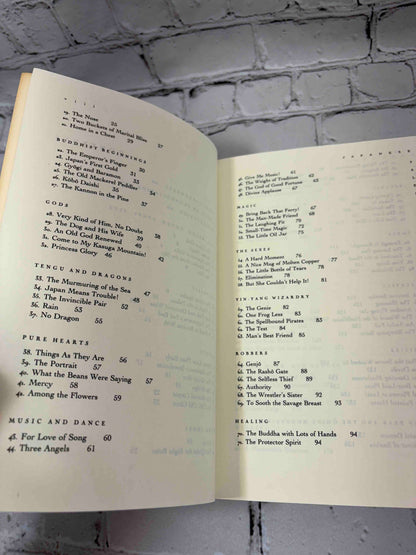 viii
19. The Nose 35
20. Two Buckets of Marital Bliss
21. Home in a Chest 39 37
BUDDHIST BEGINNINGS
22. The Emperor's Finger
23. Japan's First Gold
24. Gyōgi and Baramon
25. The Old Mackerel Peddler 34
26. Kōbō Daishi
27. The Kannon in the Pine
GODS
28. Very Kind of Him, No Doubt
29. The Dog and His Wife 39
30. An Old God Renewed 40
31. Come to My Kasuga Mountain!
32. Princess Glory 46
TENGU AND DRAGONS
33. The Murmuring of the Sea 47
34. Japan Means Trouble! 48
35. The Invincible Pair 52
36. Rain 53
37. No Dragon 55
PURE HEARTS
38. Things As They Are 56
39. The Portrait 57
40. What the Beans Were Saying 57
41. Mercy 58
42. Among the Flowers 59
MUSIC AND DANCE
43. For Love of Song 60
44. Three Angels 61
JAPANESE
45. Give Me Music! 61
46. The Weight of Tradition
47. The God of Good Fortune
48. Divine Applause 68
MAGIC
49. Bring Back That Forty!
50. The Man-Made Friend 68
51. The Laughing Fit
52. Small-Time Magic
53. The Little Oil Jar
THE SEXES
54. A Hard Moment 76
55. A Nice Mug of Molten Copper
56. The Little Bottle of Tears
57. Elimination
58. But She Couldn't Help It!
YIN-YANG WIZARDRY
59. The Genie 82
60. One Frog Less 83
61. The Spellbound Pirates 83
62. The Test 84
63. Man's Best Friend 84
ROBBERS
64. Genjō
65. The Rashō Gate 88
66. The Selfless Thief 89
67. Authority 90
68. The Wrestler's Sister 92
69. To Sooth the Savage Breast 93
HEALING
70. The Buddha with Lots of Hands 94
71. The Protector Spirit 94